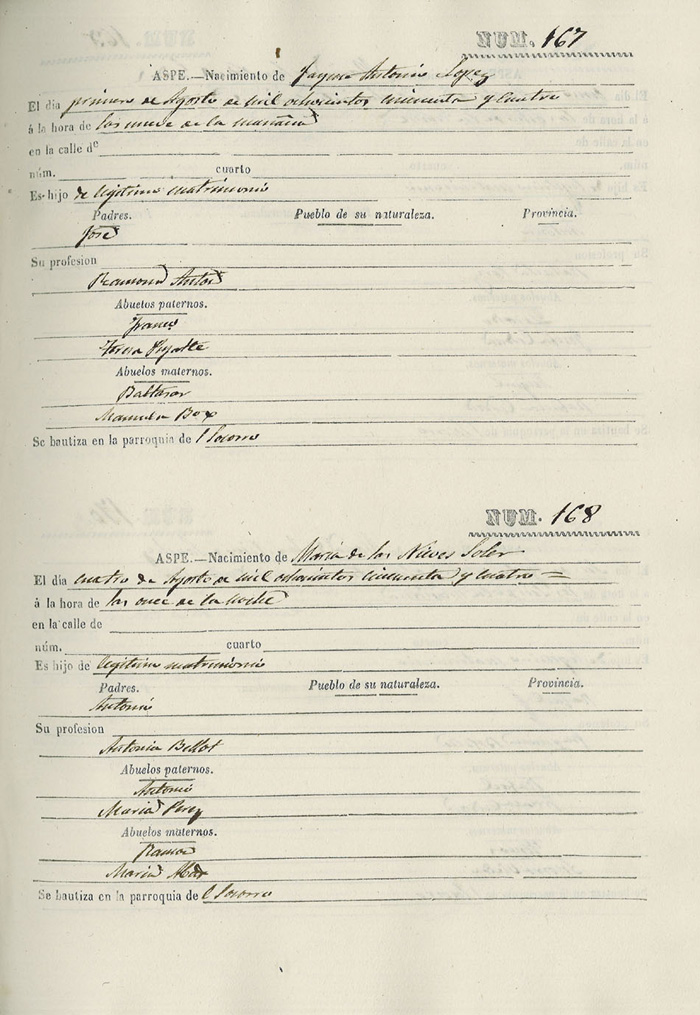 NUM. 167
ASPE.—Nacimiento de Jayme Antonio Lopez
El dia primero de Agosto de mil ochocientos cincuenta y cuatro
á la hora de las nueve de la mañana
en la calle de
núm. cuarto
Es hijo de legitimo matrimonio
Padres. Pueblo de su naturaleza. Provincia.
José
Su profesion
Ramona Anton
Abuelos paternos.
Franco
Teresa
Abuelos maternos.
Baltasar
Manuela Box
Se bautiza en la parroquia de l Socorro
NUM. 168
ASPE.—Nacimiento de Maria de las Nieves Soler
El dia cuatro de Agosto de mil ochocientos cincuenta y cuatro =
á la hora de las once de la noche
en la calle de
núm. cuarto
Es hijo de legitimo matrimonio
Padres. Pueblo de su naturaleza. Provincia.
Antonio
Su profesion
Antonia Bellot
Abuelos paternos.
Antonio
Maria Perez
Abuelos maternos.
Ramon
Maria
Se bautiza en la parroquia de l Socorro